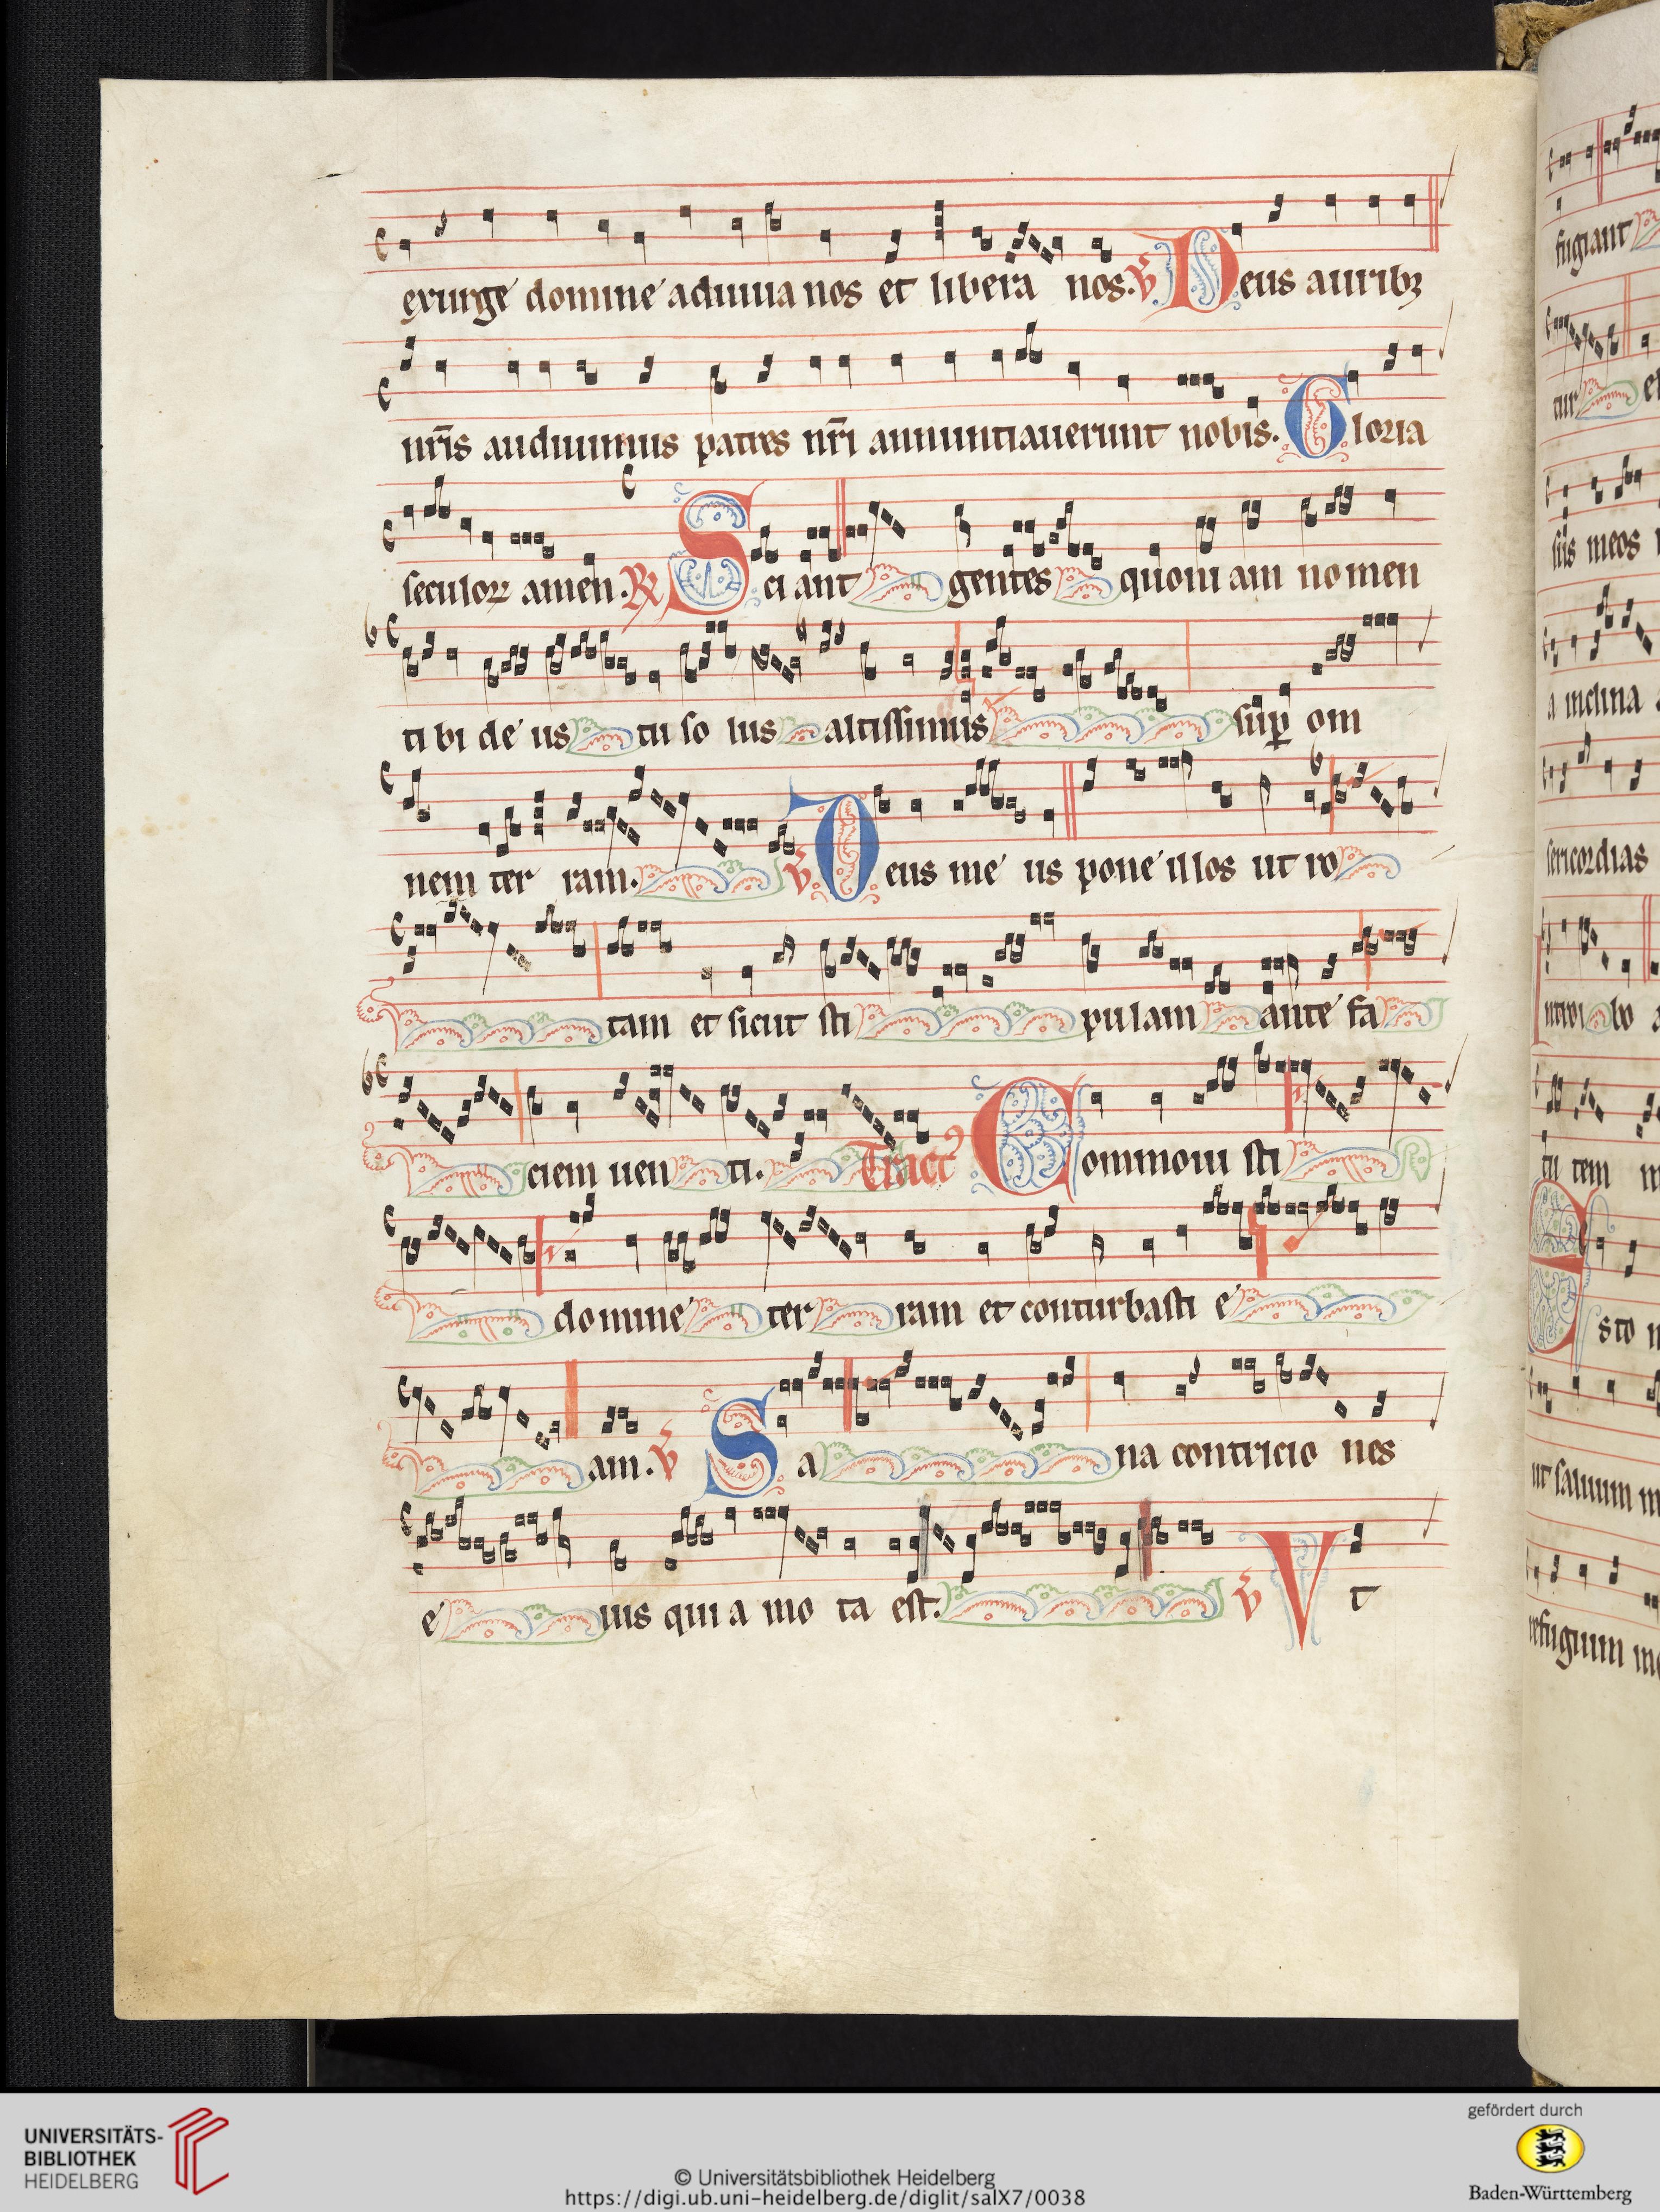 exurge domine adiuua nos et libera nos. V Deus auribꝫ
nr̄is audiuimus patres nr̄i annuntiauerunt nobis. Gloria
seculoꝝ amen. R Sci ant gentes quoni am no men
ti bi de us tu so lus altissimus suꝑ om
nem ter ram. V Deus me us pone illos ut ro
tam et sicut sti pulam ante fa
ciem uen ti. Tractꝰ Commoui sti
domine ter ram et conturbasti e
am. V S a na contricio nes
e ius qui a mo ta est. V Vt
fugiant
tur et
siis meos
a inclina
sericordias
introi bo
tu tem
Esto
ut saluum m
refugium me
UNIVERSITÄTS-
BIBLIOTHEK
HEIDELBERG
© Universitätsbibliothek Heidelberg
https://digi.ub.uni-heidelberg.de/diglit/salX7/0038
gefördert durch
Baden-Württemberg